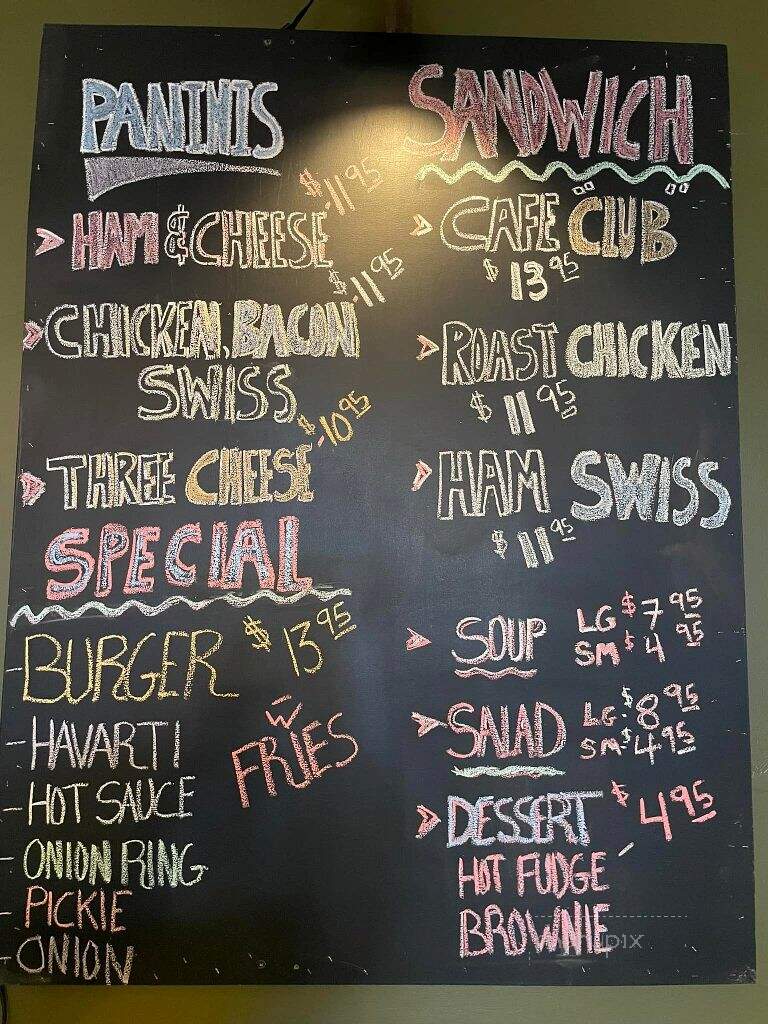 PANINIS
HAM & CHEESE $11.95
CHICKEN, BACON $11.95
SWISS
THREE CHEESE $10.95
SPECIAL
BURGER $13.95
W
FRIES
HAVARTI
HOT SAUCE
ONION RING
PICKIE
ONION
SANDWICH
CAFE CLUB
$13.95
ROAST CHICKEN
$11.95
HAM SWISS
$11.95
SOUP LG $7.95
SM $4.95
SALAD LG $8.95
SM $4.95
DESSERT $4.95
HOT FUDGE
BROWNIE